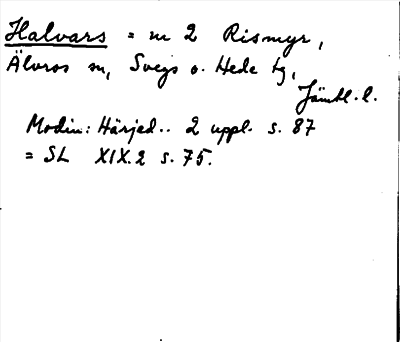 Halvars = m 2 Rismyr,
Älvros sn, Svegs o. Hede tg,
Jämtl. l.
Modin: Härjed.. 2 uppl. s. 87
= SL XIX.2 s. 75.